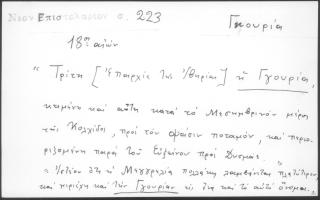 Νεον Επιστολαριον σ. 223
Γκουρία
18ος αιών
" Τρίτη [ Ἐπαρχία τῆς Ἰβηρίας ] ἡ Γγουρία,
κειμένη καὶ αὕτη κατὰ τὸ Μεσημβρινὸν μέρος
τῆς Κολχίδος, πρὸς τὸν Φᾶσιν ποταμὸν, καὶ περιο-
ριζομένη παρὰ τοῦ Εὐξείνου πρὸς Δυσμάς.
ὅτι ἡ Μεγγρελία πολλάκις λαμβάνεται πλατύτερον
καὶ περιέχει καὶ τὴν Γγουρίαν εἰς τὸ αὐτὸ ὄνομα.